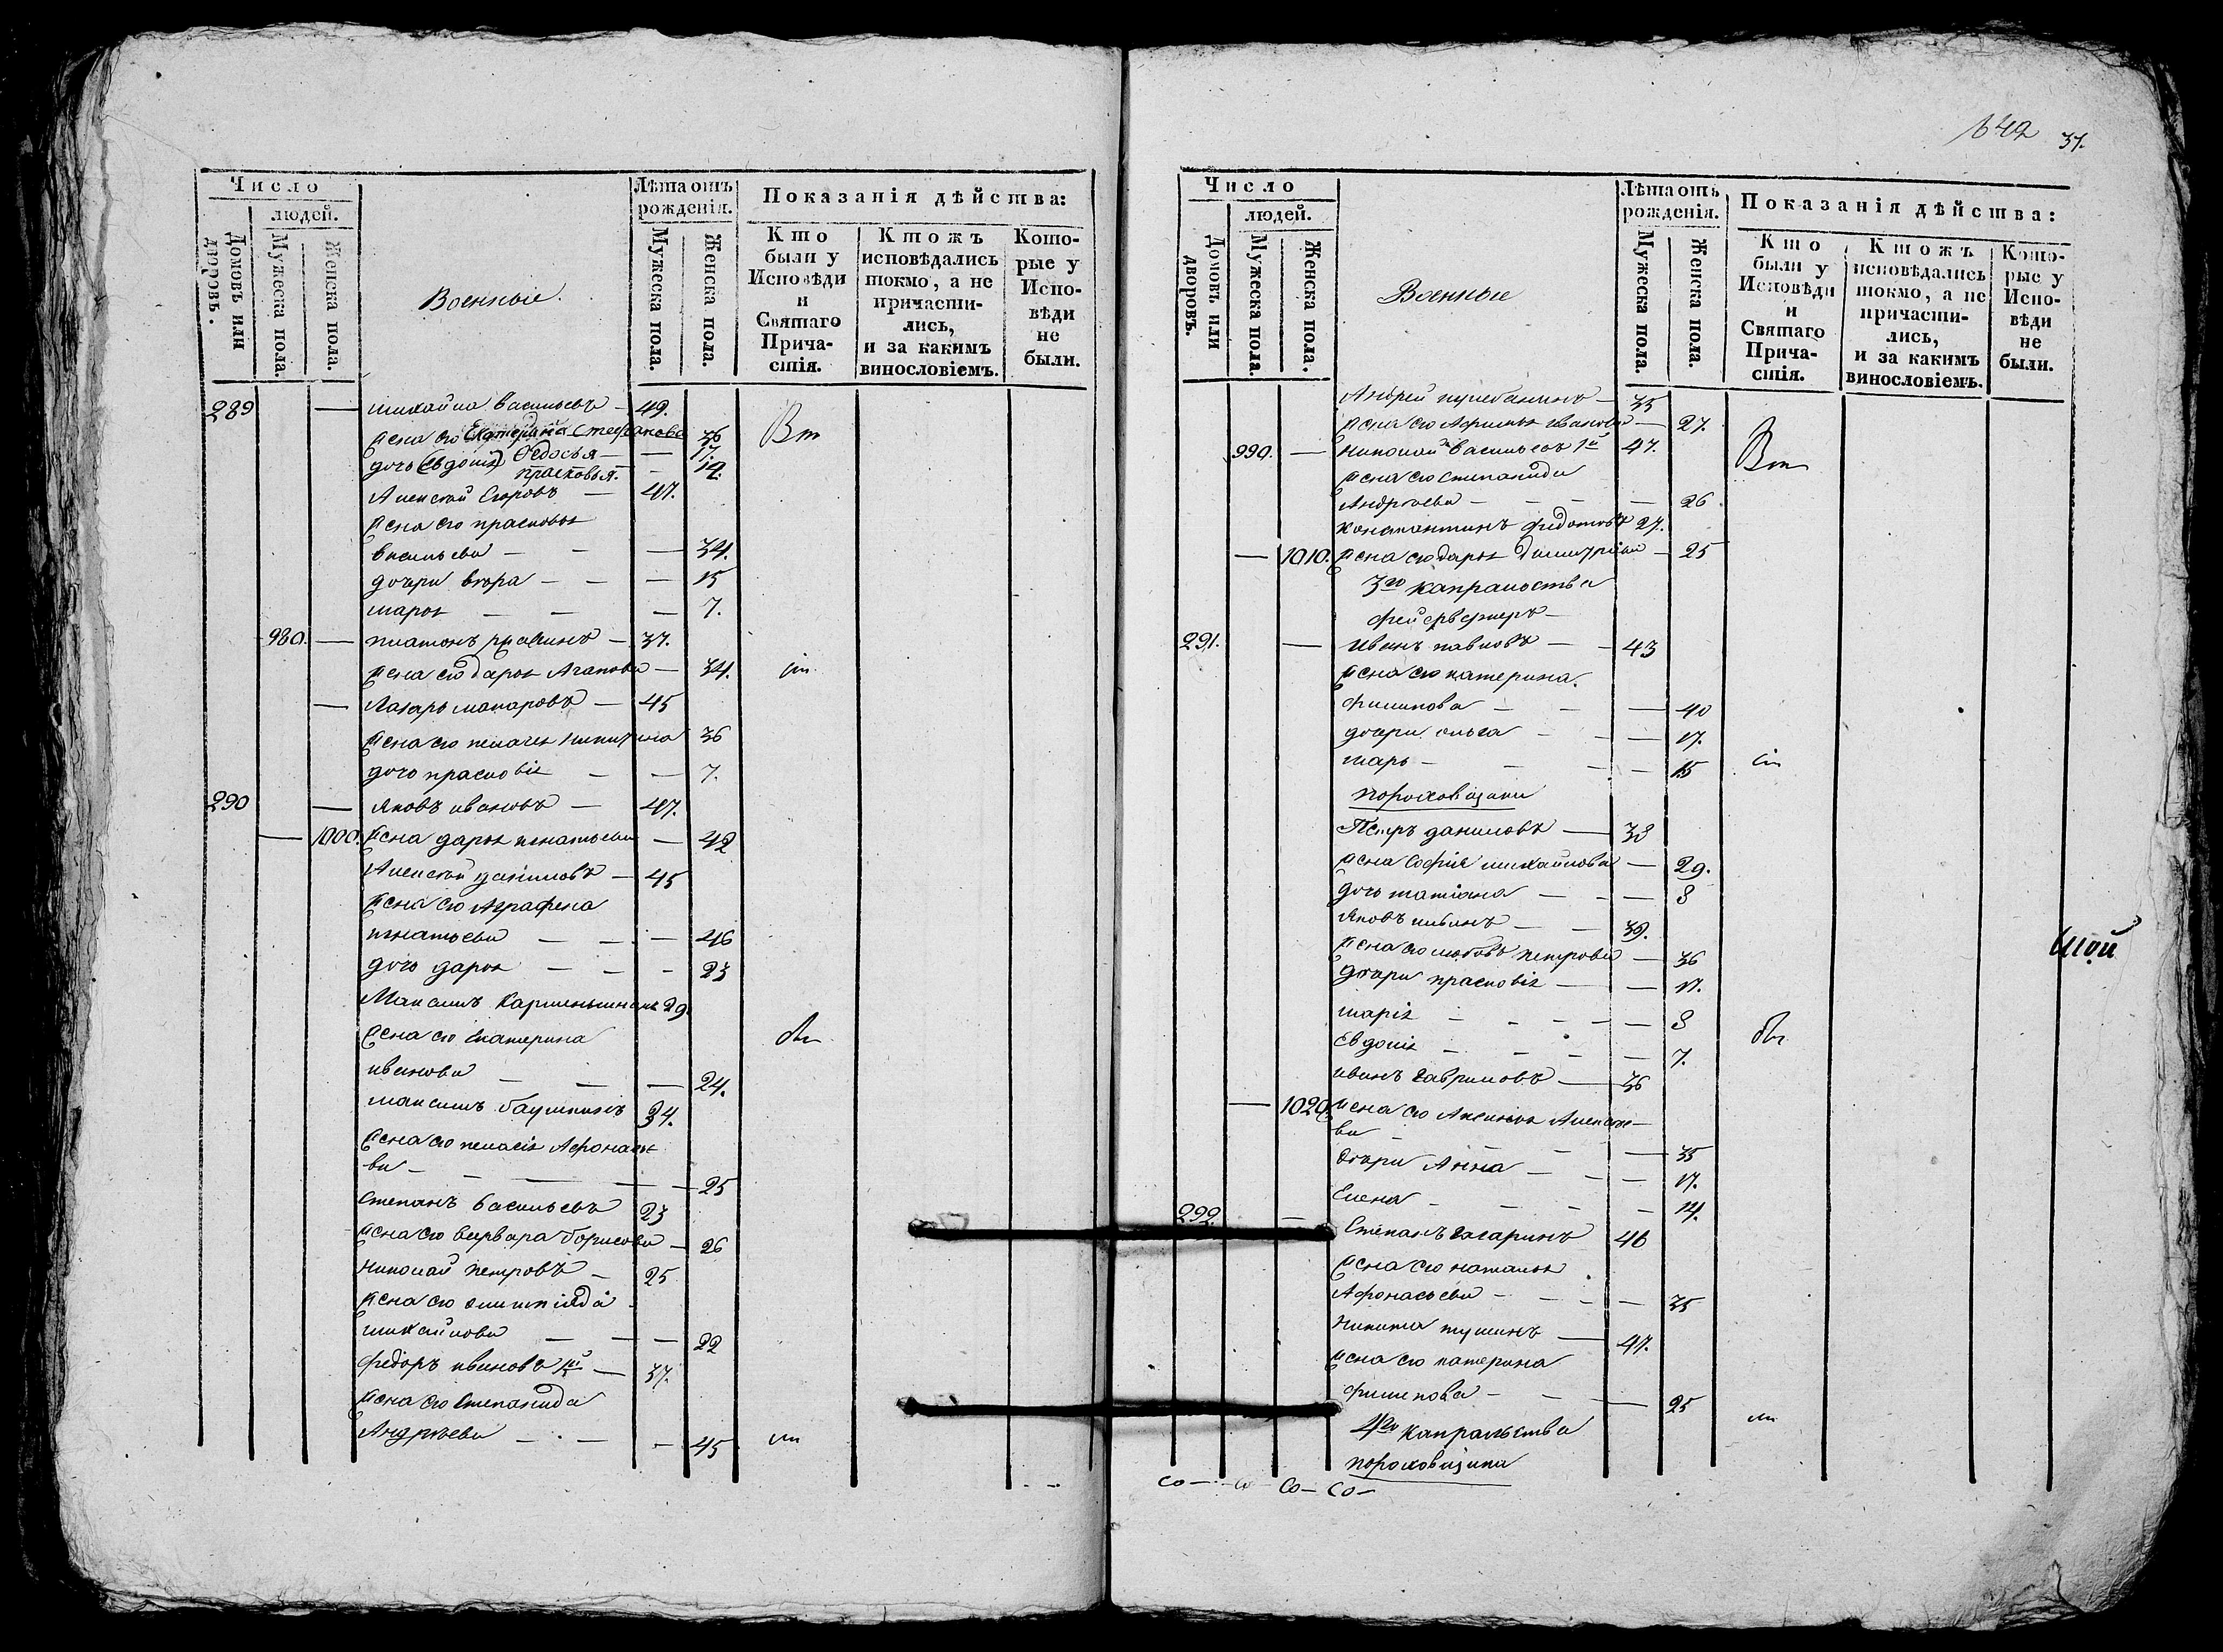 Число
людей.
Домовъ или дворовъ.
Мужеска пола.
Женска пола.
Военные.
Лѣта отъ рожденія.
Мужеска пола.
Женска пола.
Показанія дѣйства:
Кто были у Исповѣди и Святаго Причастія.
Ктожъ исповѣдались токмо, а не причастились, и за какимъ винословіемъ.
Которые у Исповѣди не были.
289 — михайла васильевъ — 49.
жена его Екатерина Стефанова 36 Вт
дочь Ѳедосья — — 17.
прасковья. — 14.
Алексѣй — 47.
жена его прасковья
васильева — — — 34.
дочери — — — 15
марья — — — 7.
980. — платонъ — 37.
жена его дарья Агапова — 34.
— Лазарь макаровъ — 45
жена его пелагея никитина 36
дочь прасковія — — 7.
290 — яковъ ивановъ — 47.
— 1000. жена дарья игнатьева — 42
Алексѣй даниловъ — 45
жена его Аграфена
игнатьева — — — 46
дочь дарья — — — 23
Максимъ 29.
жена его Екатерина
иванова — — — 24.
максимъ 34.
жена его пелагея Афонасье-
ва — — — — 25
Степанъ васильевъ 23
жена его варвара борисова — 26
николай петровъ — 25
жена его
михайлова — — — 22
федоръ ивановъ 1й — 37.
жена его Степанида
Андрѣева — — — 45
642 37.
Число
людей.
Домовъ или дворовъ.
Мужеска пола.
Женска пола.
Военные
Лѣта отъ рожденія.
Мужеска пола.
Женска пола.
Показанія дѣйства:
Кто были у Исповѣди и Святаго Причастія.
Ктожъ исповѣдались токмо, а не причастились, и за какимъ винословіемъ.
Которые у Исповѣди не были.
Андрей — 35
жена его иванова — 27.
990. — николай васильевъ 1й 47. Вт
жена его степанида
Андрѣева — — — — 26
константинъ федотовъ 27.
— 1010. жена его дарья димитріева — 25
3го капральства
фейерверкеръ —
291. — иванъ павловъ — — 43
жена его катерина.
филипова — — — 40
дочери ольга — — — 17.
марья — — — — 15
пороховщики
Петръ даниловъ — 38
жена Софія михайлова — 29.
дочь татіана — — — 8
яковъ — — 39.
жена его любовь петрова — 36
дочери прасковія — — 17.
марія — — — — — 8
Евдокія — — — — 7.
иванъ гавриловъ — 36
— 1020. жена его Аксинья Алексѣе-
ва — — — — 35
дочери Анна — — — 17.
Елена — — — — — 14.
292. — Степанъ гагаринъ 46
жена его наталья
Афонасьева — — — — 35
никита — 47.
жена его катерина
филипова — — — 25
4го капральства
пороховщики